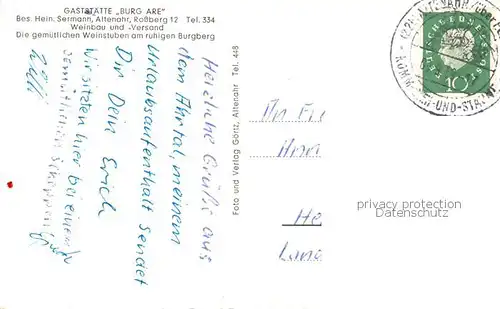 GASTSTÄTTE „BURG ARE"
Bes. Hein. Sermann, Altenahr, Roßberg 12 Tel. 334
Weinbau und -Versand
Die gemütlichen Weinstuben am ruhigen Burgberg
Herzliche Grüße aus
dem Ahrtal, meinem
Urlaubsaufenthalt sendet
Dir Dein Erich
Wir sitzen hier bei einem
gemütlichen Schoppen
Willi
Foto und Verlag Göritz, Altenahr Tel. 448
DEUTSCHE BUNDESPOST
10
UND
An
He
Land
privacy protection
Datenschutz